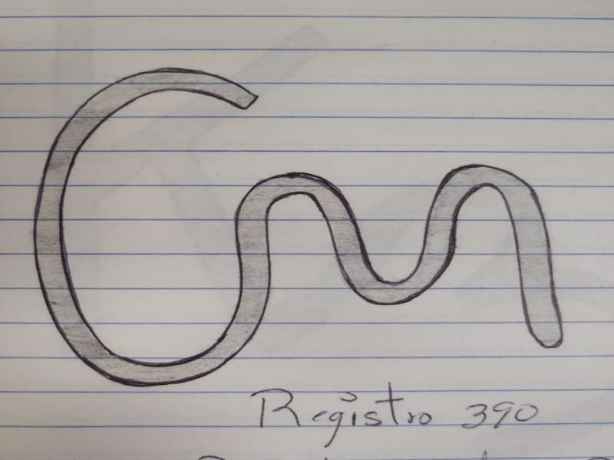 Cm
Registro 390